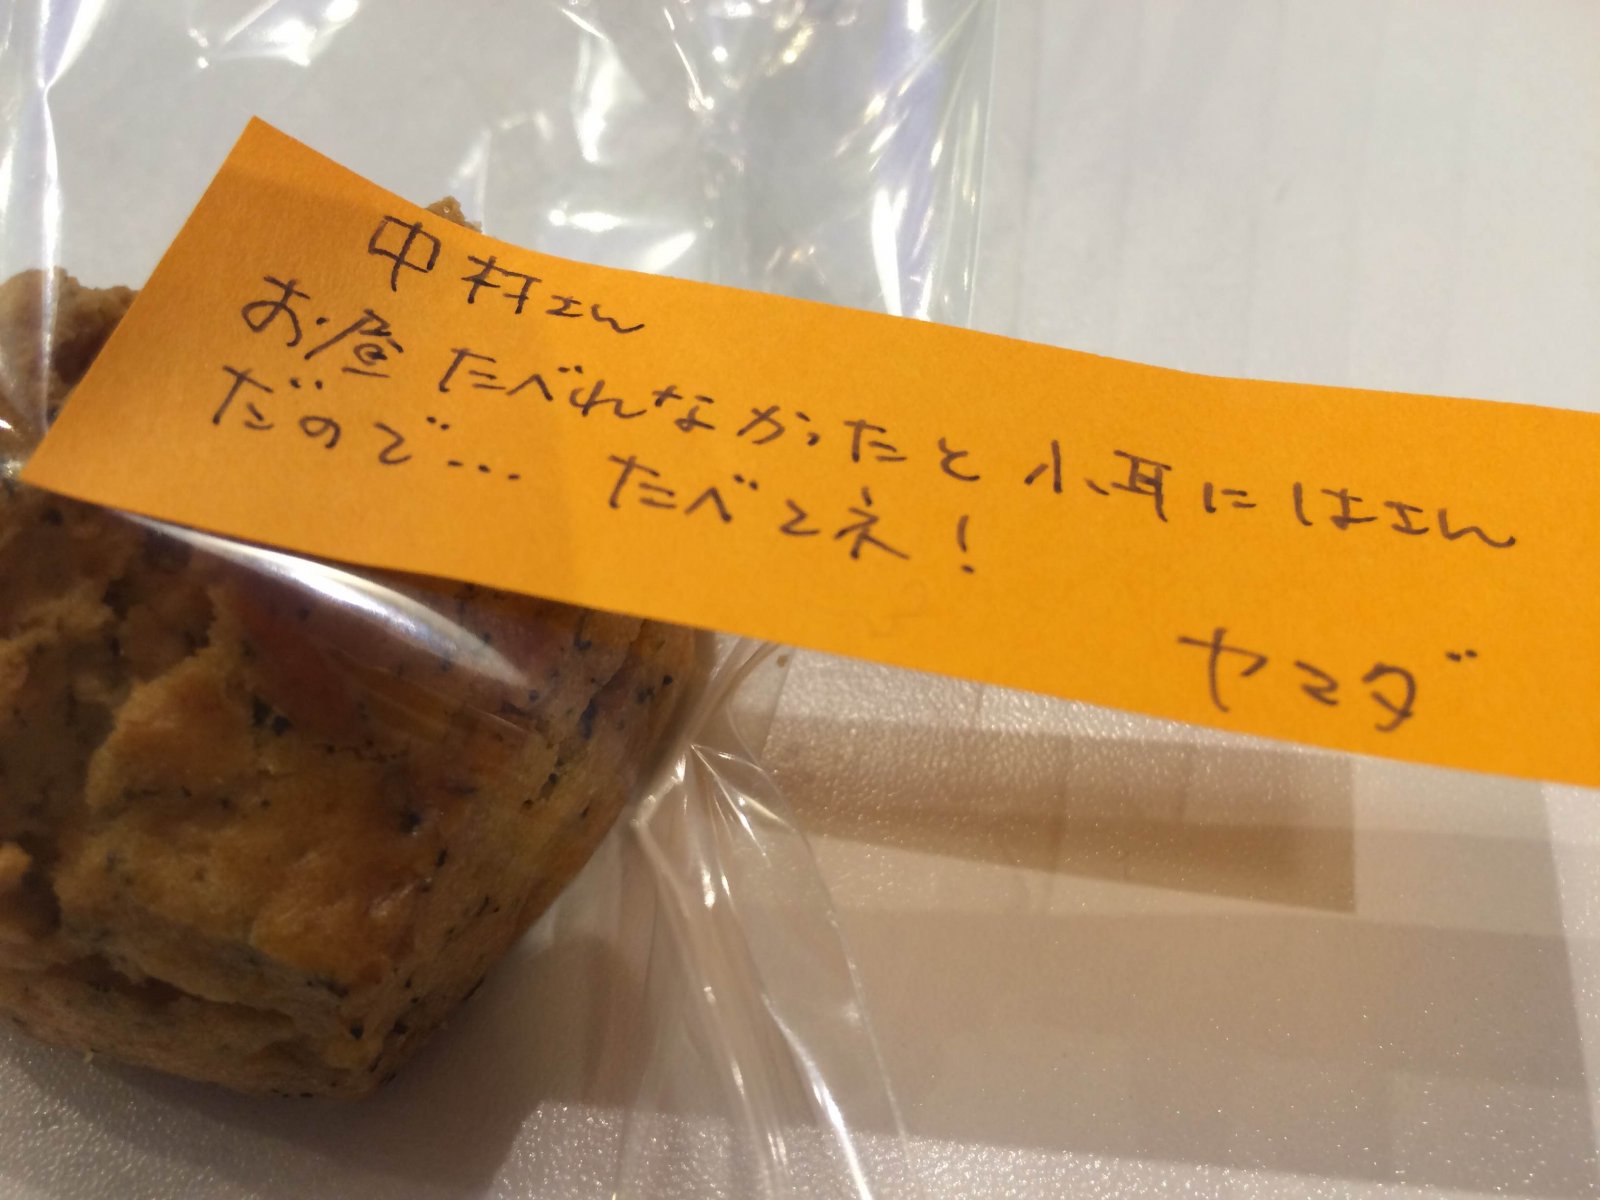 中村さん
お昼たべれなかったと小耳にはさん
だので… たべてネ！
ヤマダ